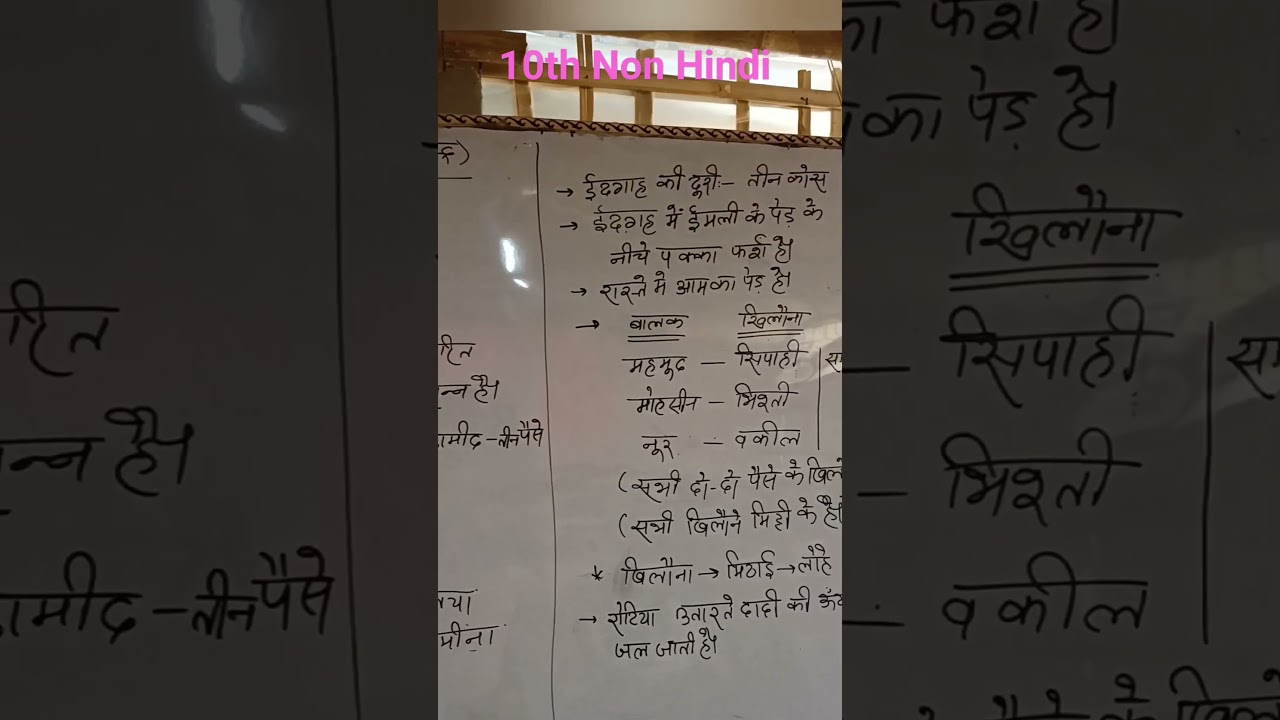 10th Non Hindi
→ ईदगाह की दूरीः- तीन कोस
→ ईदगाह में ईमली के पेड़ के
नीचे पक्का फर्श है।
→ रास्ते मे आम का पेड़ है।
→ बालक खिलौना
महमुद - सिपाही
मोहसीन - भिश्ती
नूर - वकील
(सभी दो-दो पैसे के खिलौ
(सभी खिलौने मिट्टी के है।
* खिलौना → मिठाई → लौहे
→ रोटिया उतारते दादी की
जल जाती है।
न्न है।
मीद - तीन पैसे